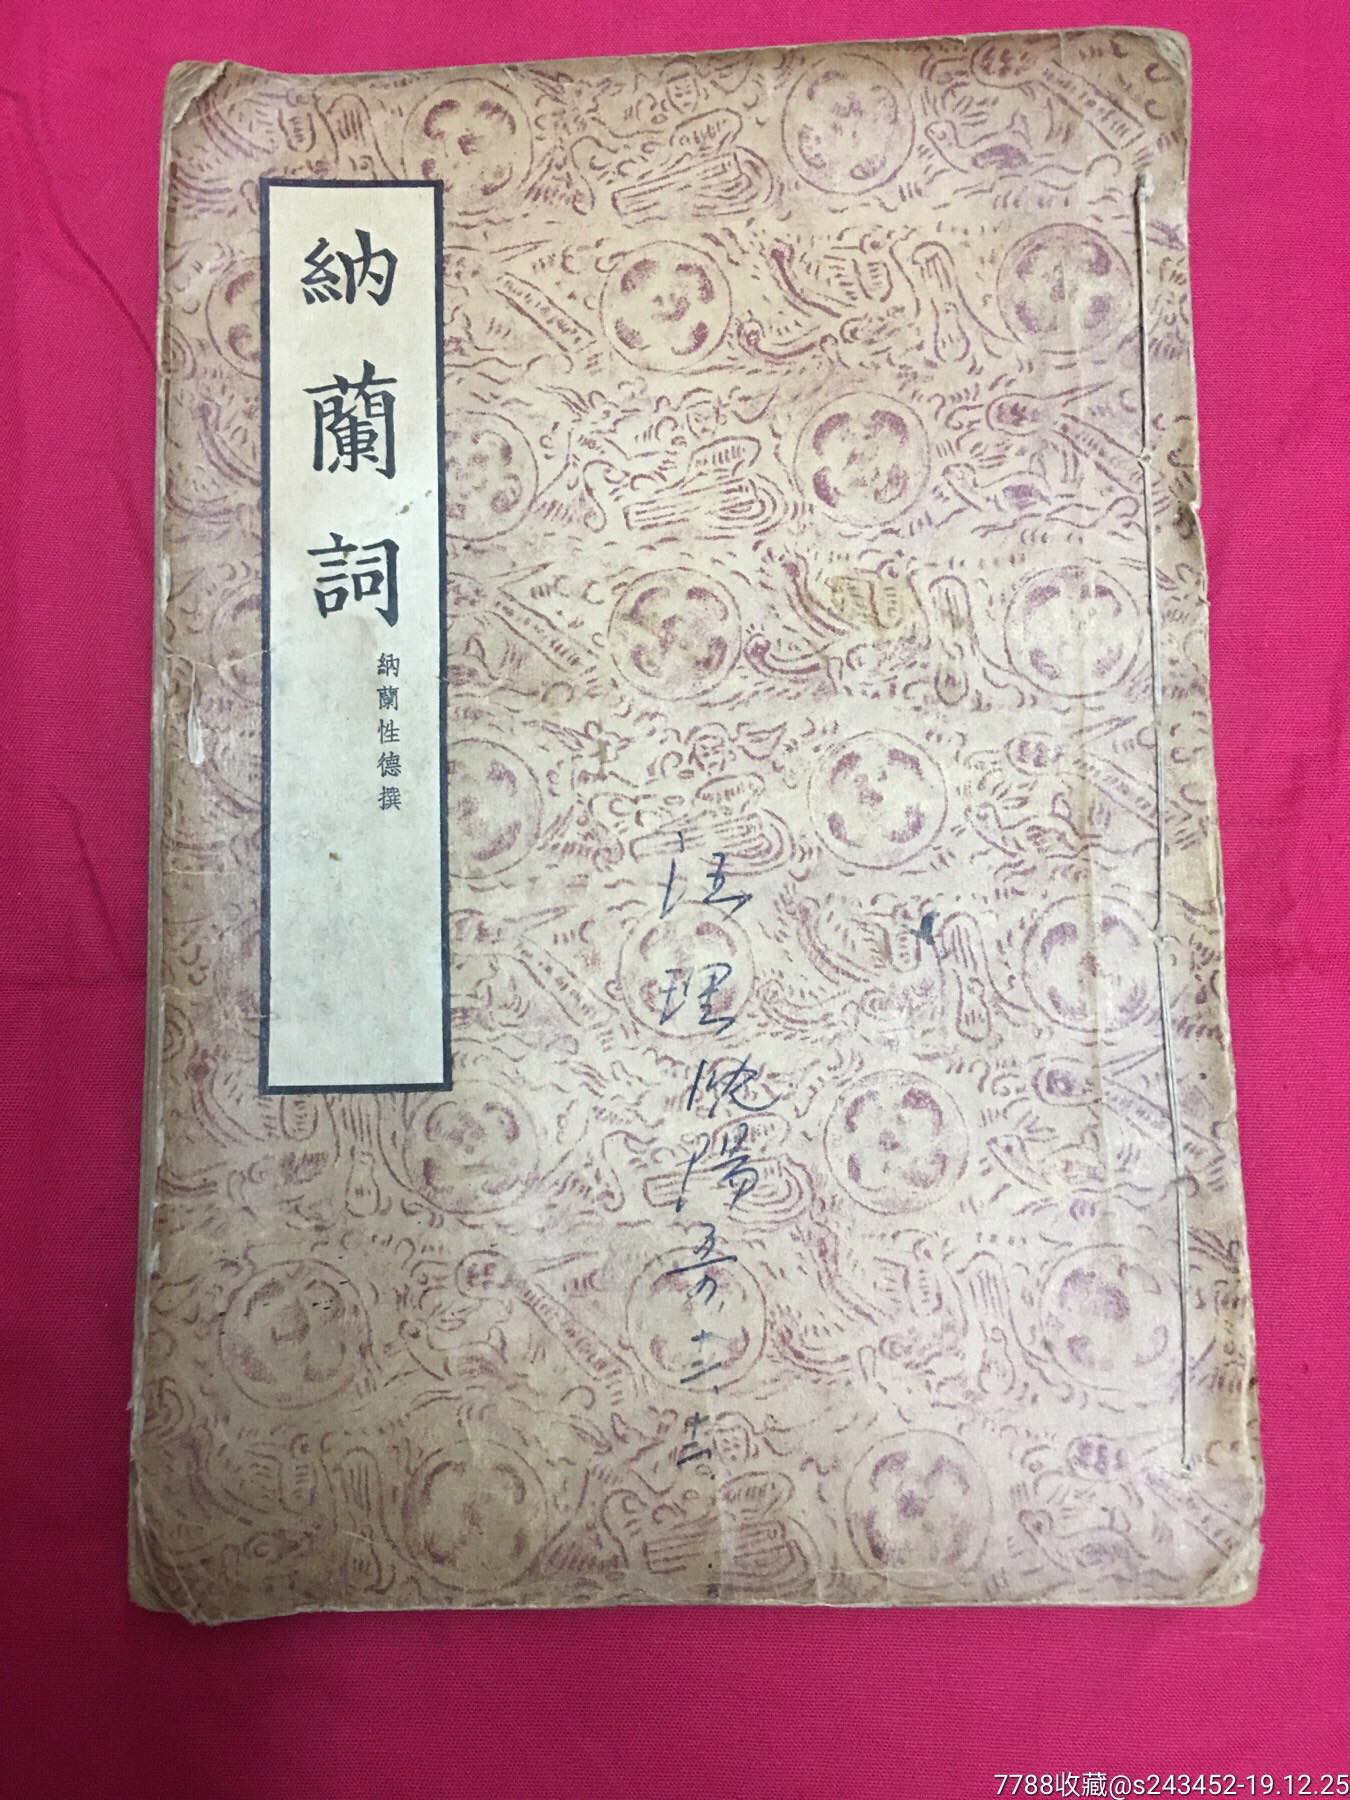 納蘭詞
納蘭性德撰
理
陽
十二
7788收藏@s243452-19.12.25